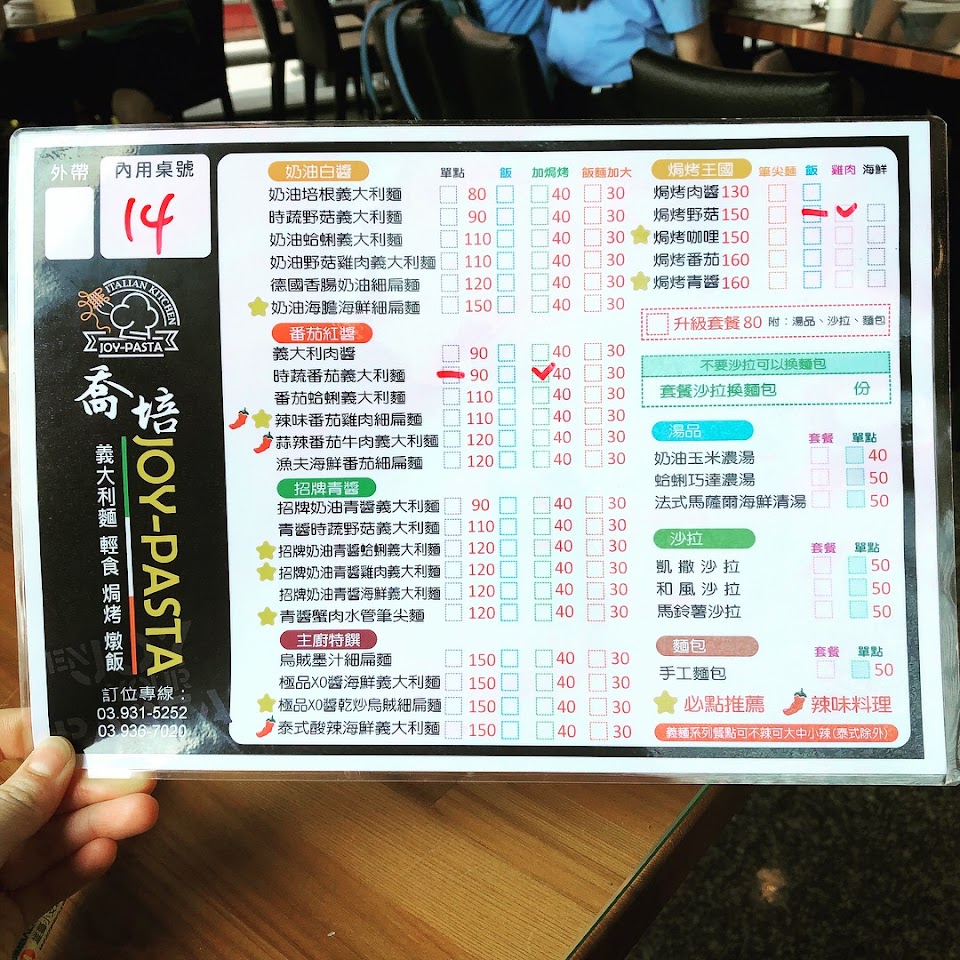 外帶 內用桌號
14
ITALIAN KITCHEN
JOY-PASTA
喬培
JOY-PASTA
義大利麵 輕食 焗烤 燉飯
訂位專線：
03.931-5252
03.936-7020
奶油白醬 單點 飯 加焗烤 飯麵加大
奶油培根義大利麵 80 40 30
時蔬野菇義大利麵 90 40 30
奶油蛤蜊義大利麵 110 40 30
奶油野菇雞肉義大利麵 110 40 30
德國香腸奶油細扁麵 120 40 30
奶油海膽海鮮細扁麵 150 40 30
番茄紅醬
義大利肉醬 90 40 30
時蔬番茄義大利麵 90 40 30
番茄蛤蜊義大利麵 110 40 30
辣味番茄雞肉細扁麵 110 40 30
蒜辣番茄牛肉義大利麵 120 40 30
漁夫海鮮番茄細扁麵 120 40 30
招牌青醬
招牌奶油青醬義大利麵 90 40 30
青醬時蔬野菇義大利麵 110 40 30
招牌奶油青醬蛤蜊義大利麵 120 40 30
招牌奶油青醬雞肉義大利麵 120 40 30
招牌奶油青醬海鮮義大利麵 120 40 30
青醬蟹肉水管筆尖麵 120 40 30
主廚特饌
烏賊墨汁細扁麵 150 40 30
極品XO醬海鮮義大利麵 150 40 30
極品XO醬乾炒烏賊細扁麵 150 40 30
泰式酸辣海鮮義大利麵 150 40 30
焗烤王國 筆尖麵 飯 雞肉 海鮮
焗烤肉醬 130
焗烤野菇 150
焗烤咖哩 150
焗烤番茄 160
焗烤青醬 160
升級套餐 80 附：湯品、沙拉、麵包
不要沙拉可以換麵包
套餐沙拉換麵包 份
湯品 套餐 單點
奶油玉米濃湯 40
蛤蜊巧達濃湯 50
法式馬薩爾海鮮清湯 50
沙拉 套餐 單點
凱撒沙拉 50
和風沙拉 50
馬鈴薯沙拉 50
麵包 套餐 單點
手工麵包 50
必點推薦 辣味料理
義麵系列餐點可不辣可大中小辣(泰式除外)